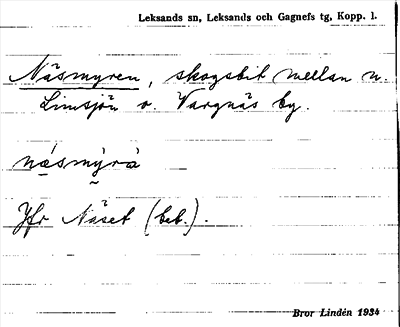 Leksands sn, Leksands och Gagnefs tg, Kopp. l.
Näsmyren, skogsbit mellan n.
Limsjön o. Vargnäs by.
næ̀smýrà
Jfr Näset (beb.).
Bror Lindén 1934